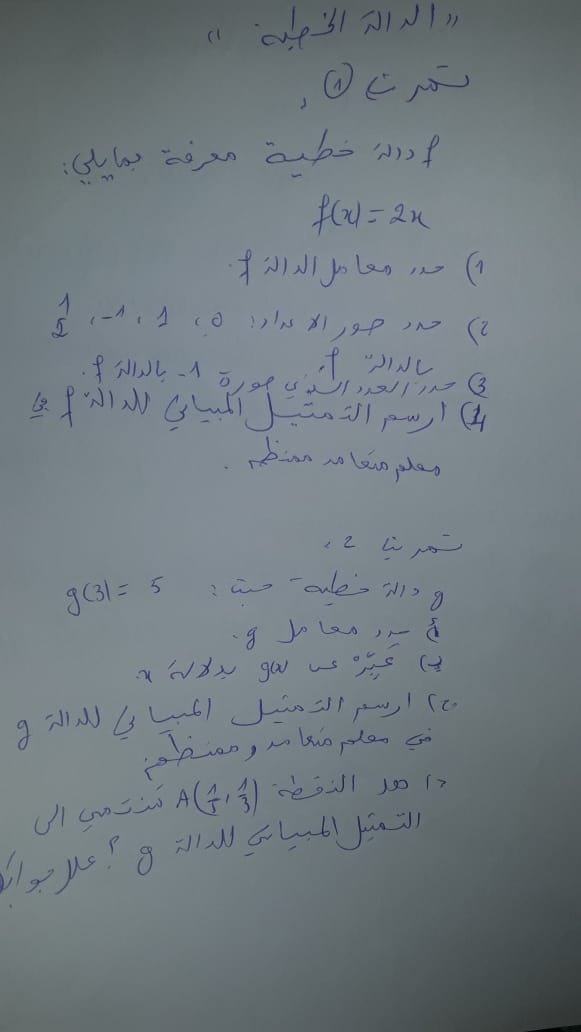 " الدالة الخطية "
تمرين ①
f دالة خطية معرفة بمايلي:
f(x) = 2x
1) حدد معامل الدالة f.
2) حدد صور الاعداد: 0، 1، -1، 1/2
بالدالة f.
3) حدد العدد الذي صورة -1 بالدالة f.
4) ارسم التمثيل المبياني للدالة f في
معلم متعامد ممنظم.
تمرين 2:
g دالة خطية حيث: g(3) = 5
أ) حدد معامل g.
ب) عَبِّرْ عن g(x) بدلالة x.
ج) ارسم التمثيل المبياني للدالة g
في معلم متعامد وممنظم.
د) هل النقطة A(1/5, 1/3) تنتمي الى
التمثيل المبياني للدالة g؟ علل جوابك